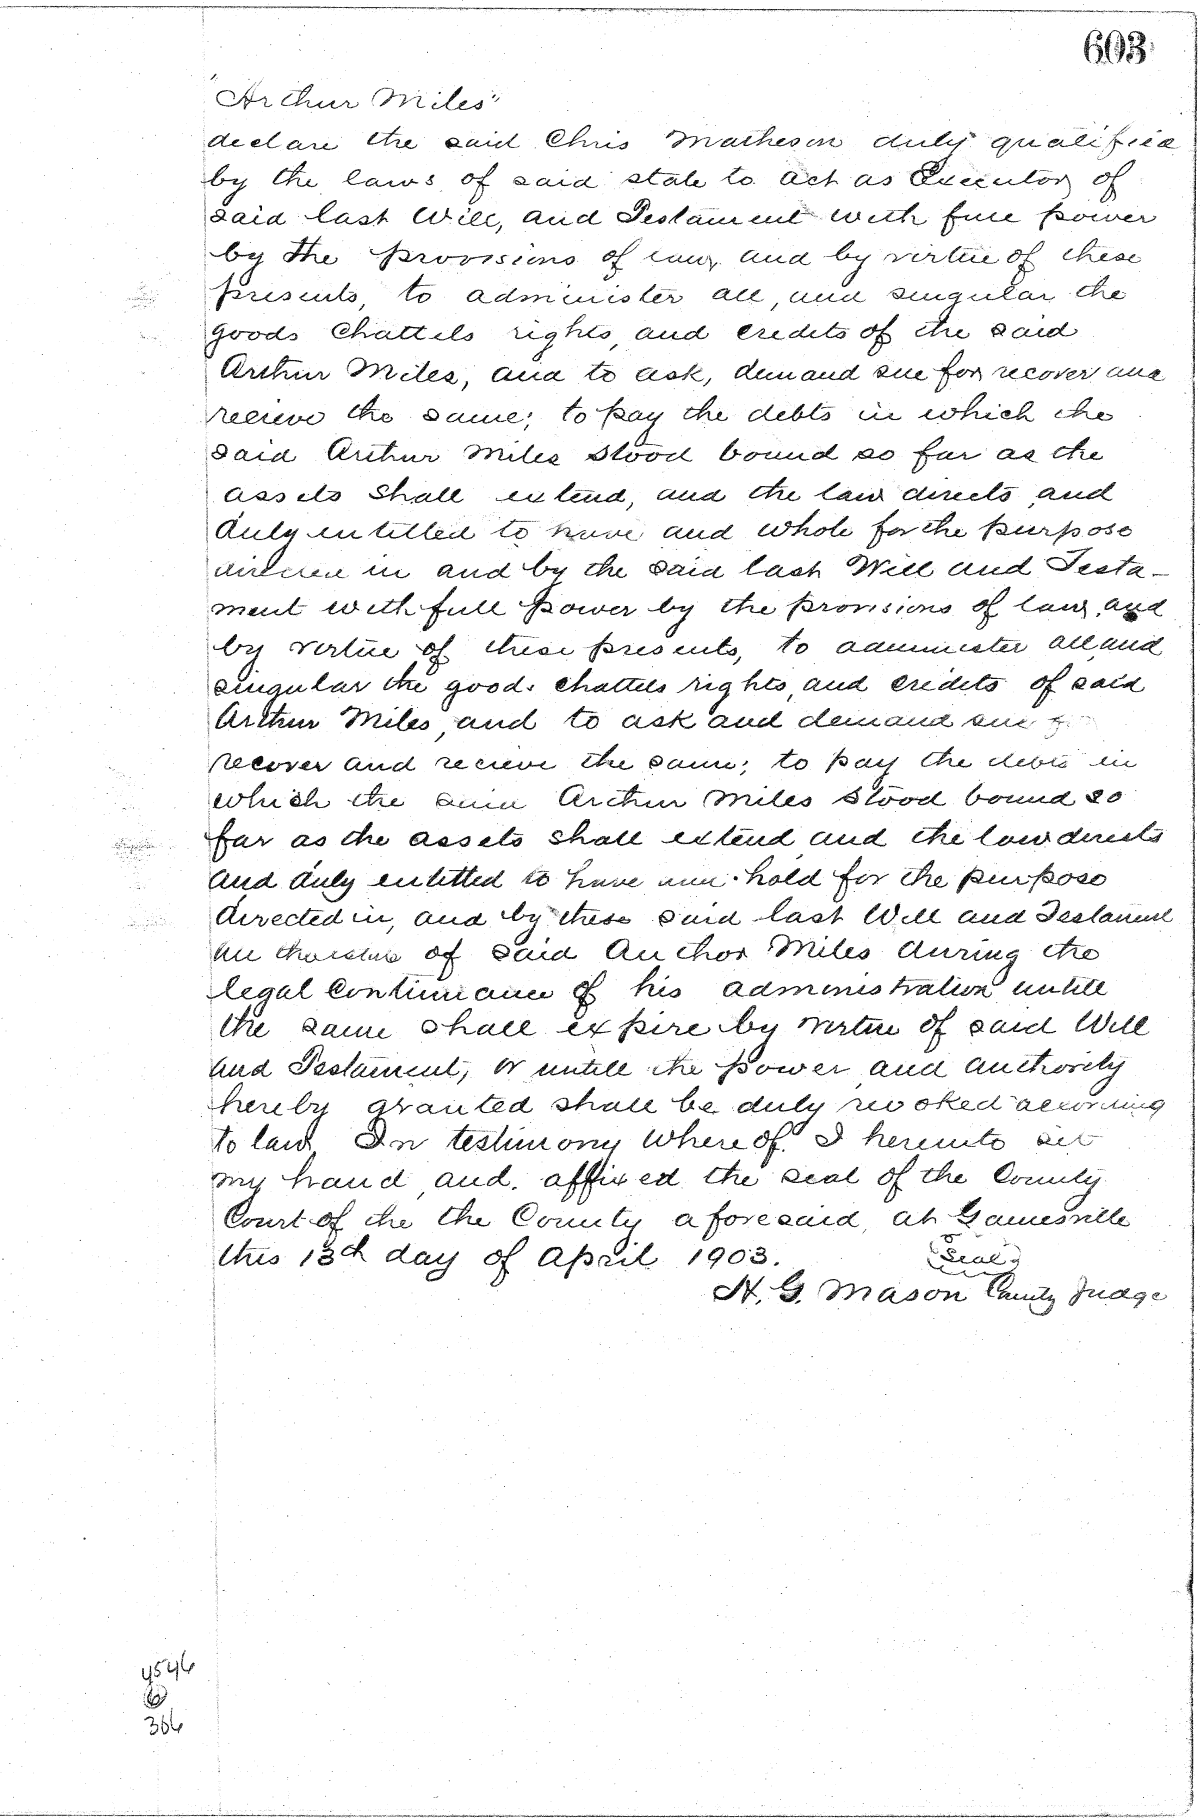 603
"Arthur Miles"
declare the said Chris Matheson duly qualified
by the laws of said state to act as Executor of
said last Will, and Testament with full power
by the provisions of law, and by virtue of these
presents, to administer all, and singular the
goods Chattels rights, and credits of the said
Arthur Miles, and to ask, demand sue for, recover and
recieve the same; to pay the debts in which the
said Arthur Miles stood bound so far as the
assets shall extend, and the law directs, and
duly entitled to have and whole for the purpose
directed in and by the said last Will and Testa-
ment with full power by the provisions of law, and
by virtue of these presents, to administer all, and
singular the goods chattels rights, and credits of said
Arthur Miles, and to ask and demand sue
recover and recieve the same; to pay the debts in
which the said Arthur Miles stood bound so
far as the assets shall extend and the law directs
and duly entitled to have and hold for the purpose
directed in, and by these said last Will and Testament
of said Author Miles during the
legal continuance of his administration untill
the same shall expire by virtue of said Will
and Testament, or untill the power and authority
hereby granted shall be duly revoked according
to law. In testimony where of I hereunto set
my hand, and. affixed the seal of the County
Court of the the County aforesaid, at Gainesville
this 13th day of April 1903. (Seal)
H. G. Mason County Judge
4546
366